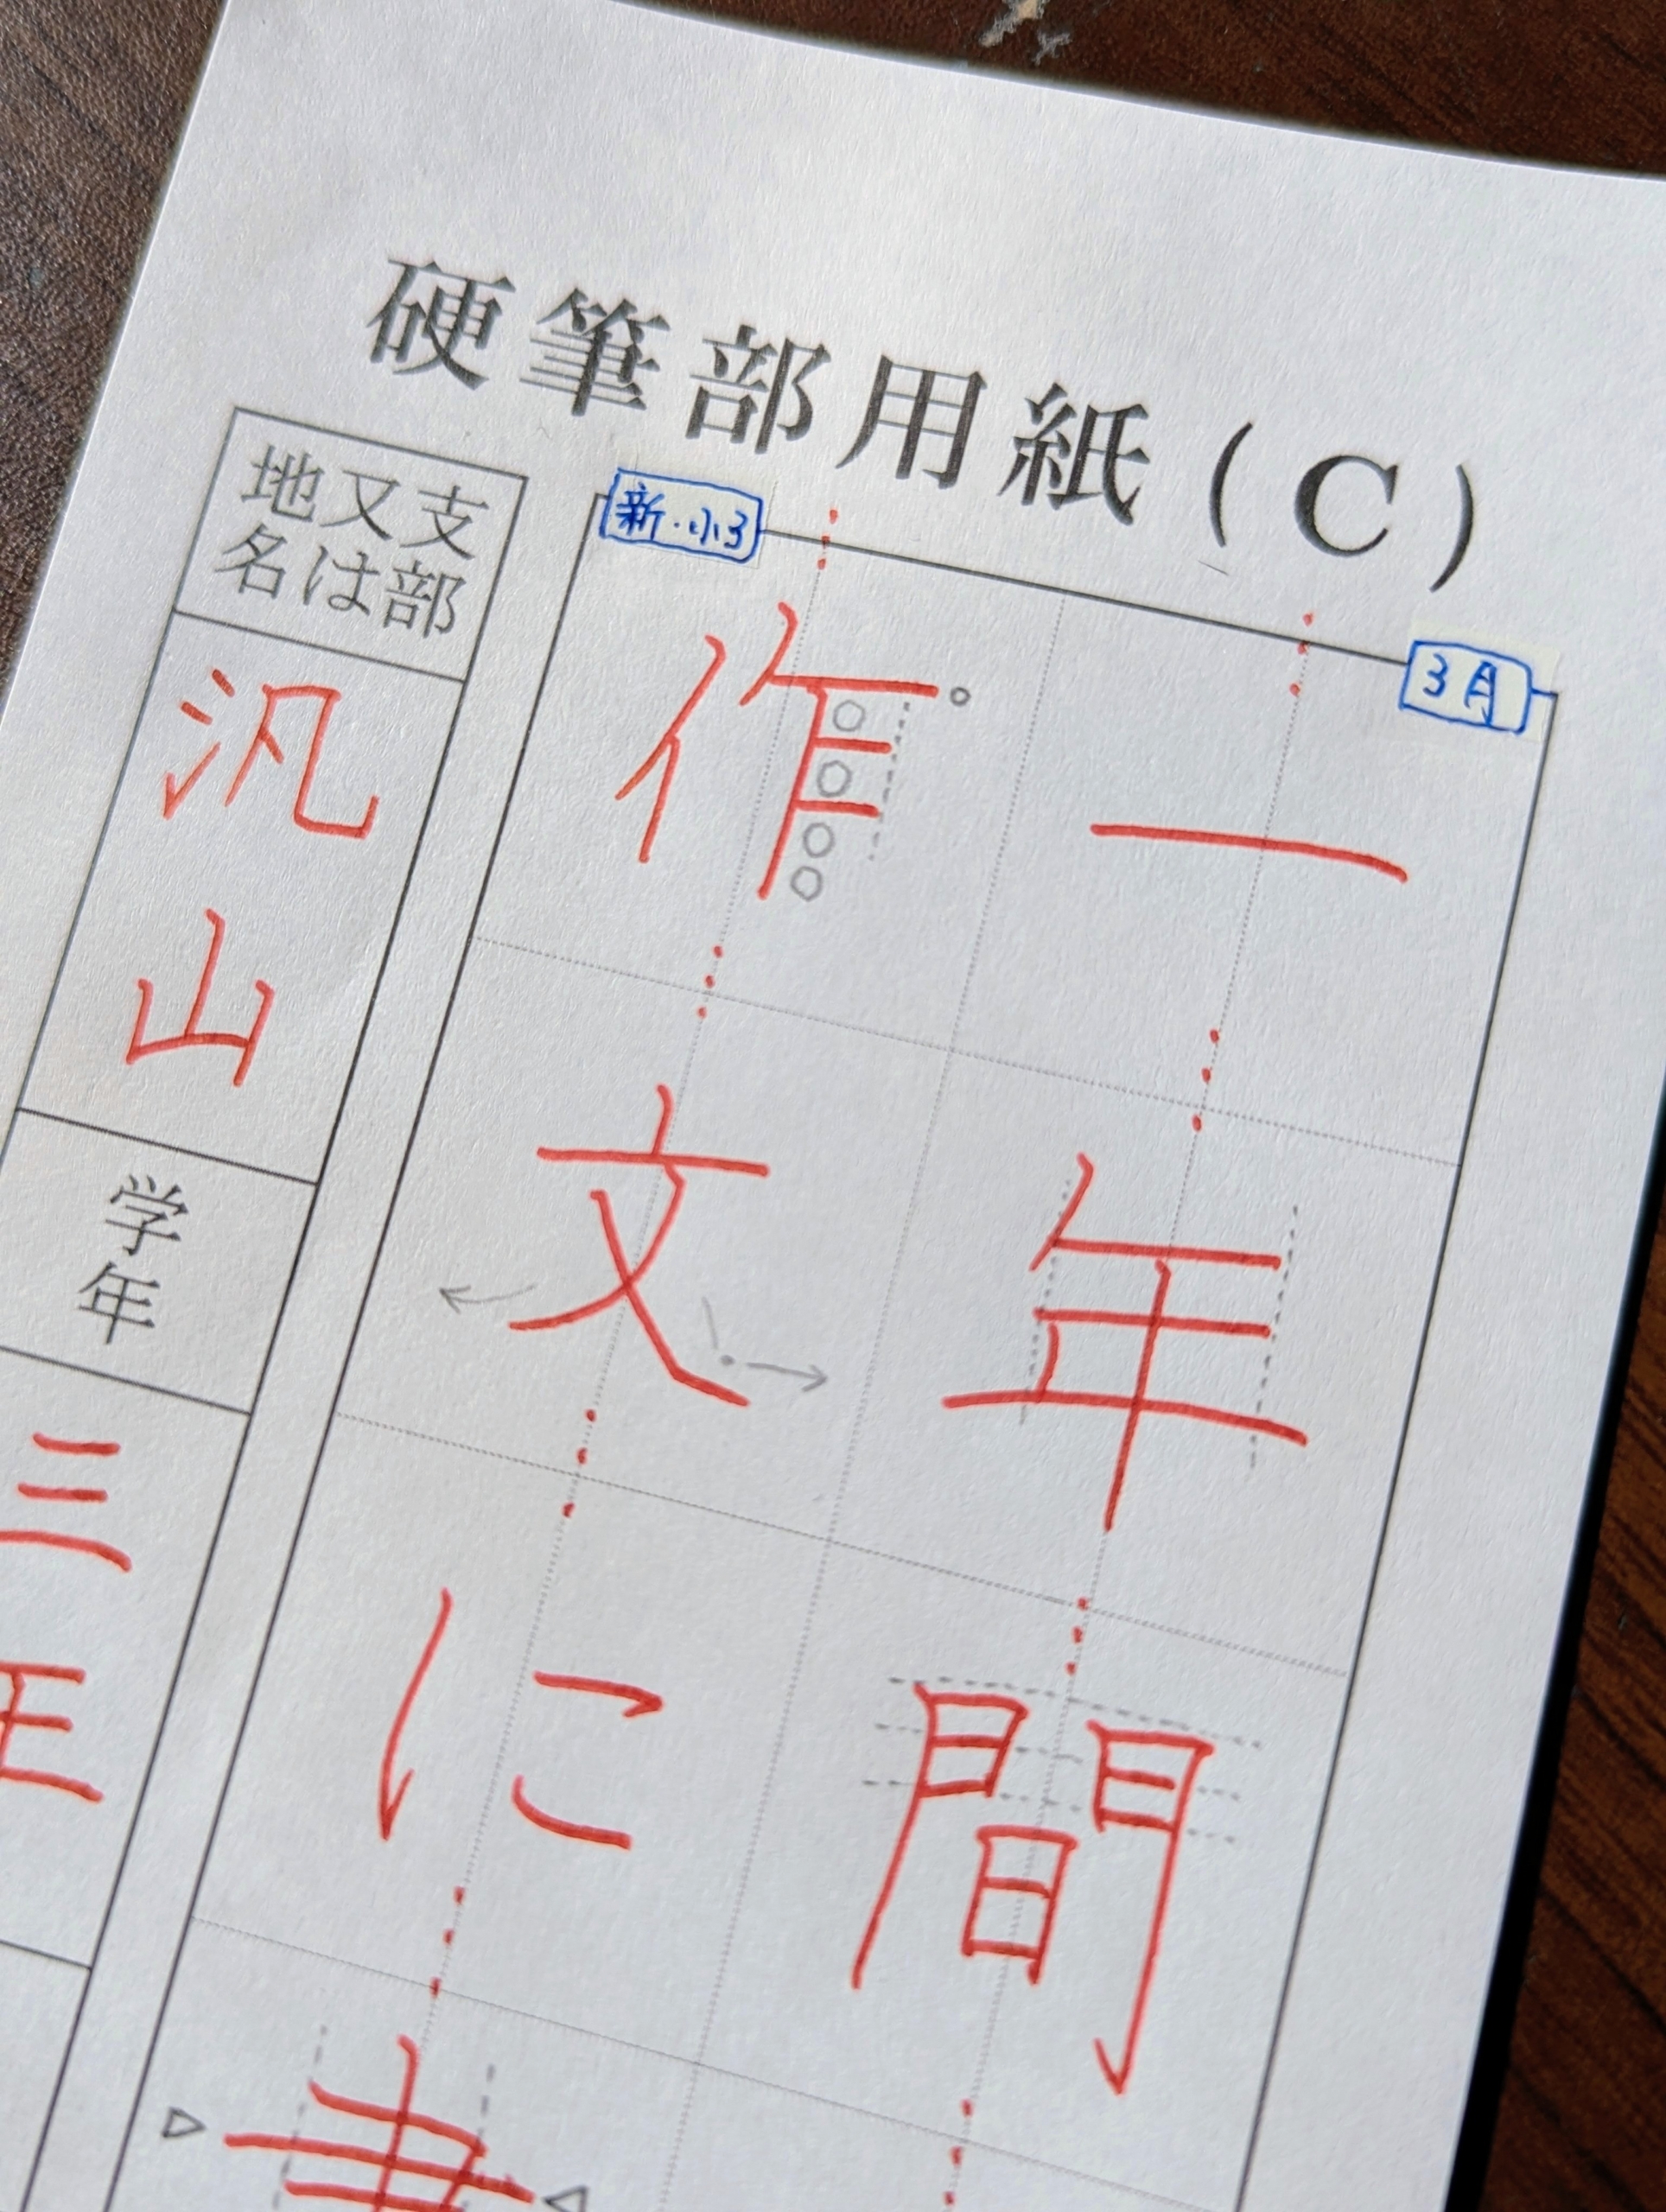 硬筆部用紙(C)
3月
新・小3
一年間
作文に書
支部
又は
地名
汎山
学年
三年